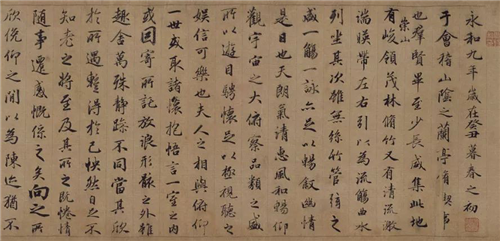 永和九年歲在癸丑暮春之初
于會稽山陰之蘭亭脩稧事
也群賢畢至少長咸集此地
崇山
有峻領茂林脩竹又有清流激
湍暎帶左右引以為流觴曲水
列坐其次雖無絲竹管弦之
盛一觴一詠亦足以暢叙幽情
是日也天朗氣清惠風和暢仰
觀宇宙之大俯察品類之盛
所以遊目騁懷足以極視聽之
娛信可樂也夫人之相與俯仰
一世或取諸懷抱悟言一室之
或因寄所託放浪形骸之外雖
趣舍萬殊靜躁不同當其欣
於所遇蹔得於己怏然自足不
知老之將至及其所之既惓情
隨事遷感慨係之矣向之所
欣俛仰之間以為陳迹猶不